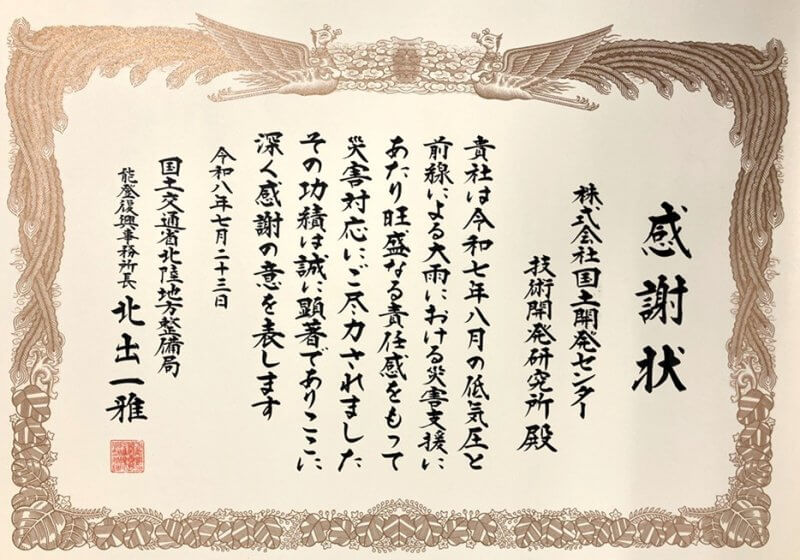 感謝状
株式会社国土開発センター
技術開発研究所 殿
貴社は令和七年八月の低気圧と
前線による大雨における災害支援に
あたり旺盛なる責任感をもって
災害対応にご尽力されました
その功績は誠に顕著でありここに
深く感謝の意を表します
令和八年七月二十三日
国土交通省北陸地方整備局
能登復興事務所長 北出一雅